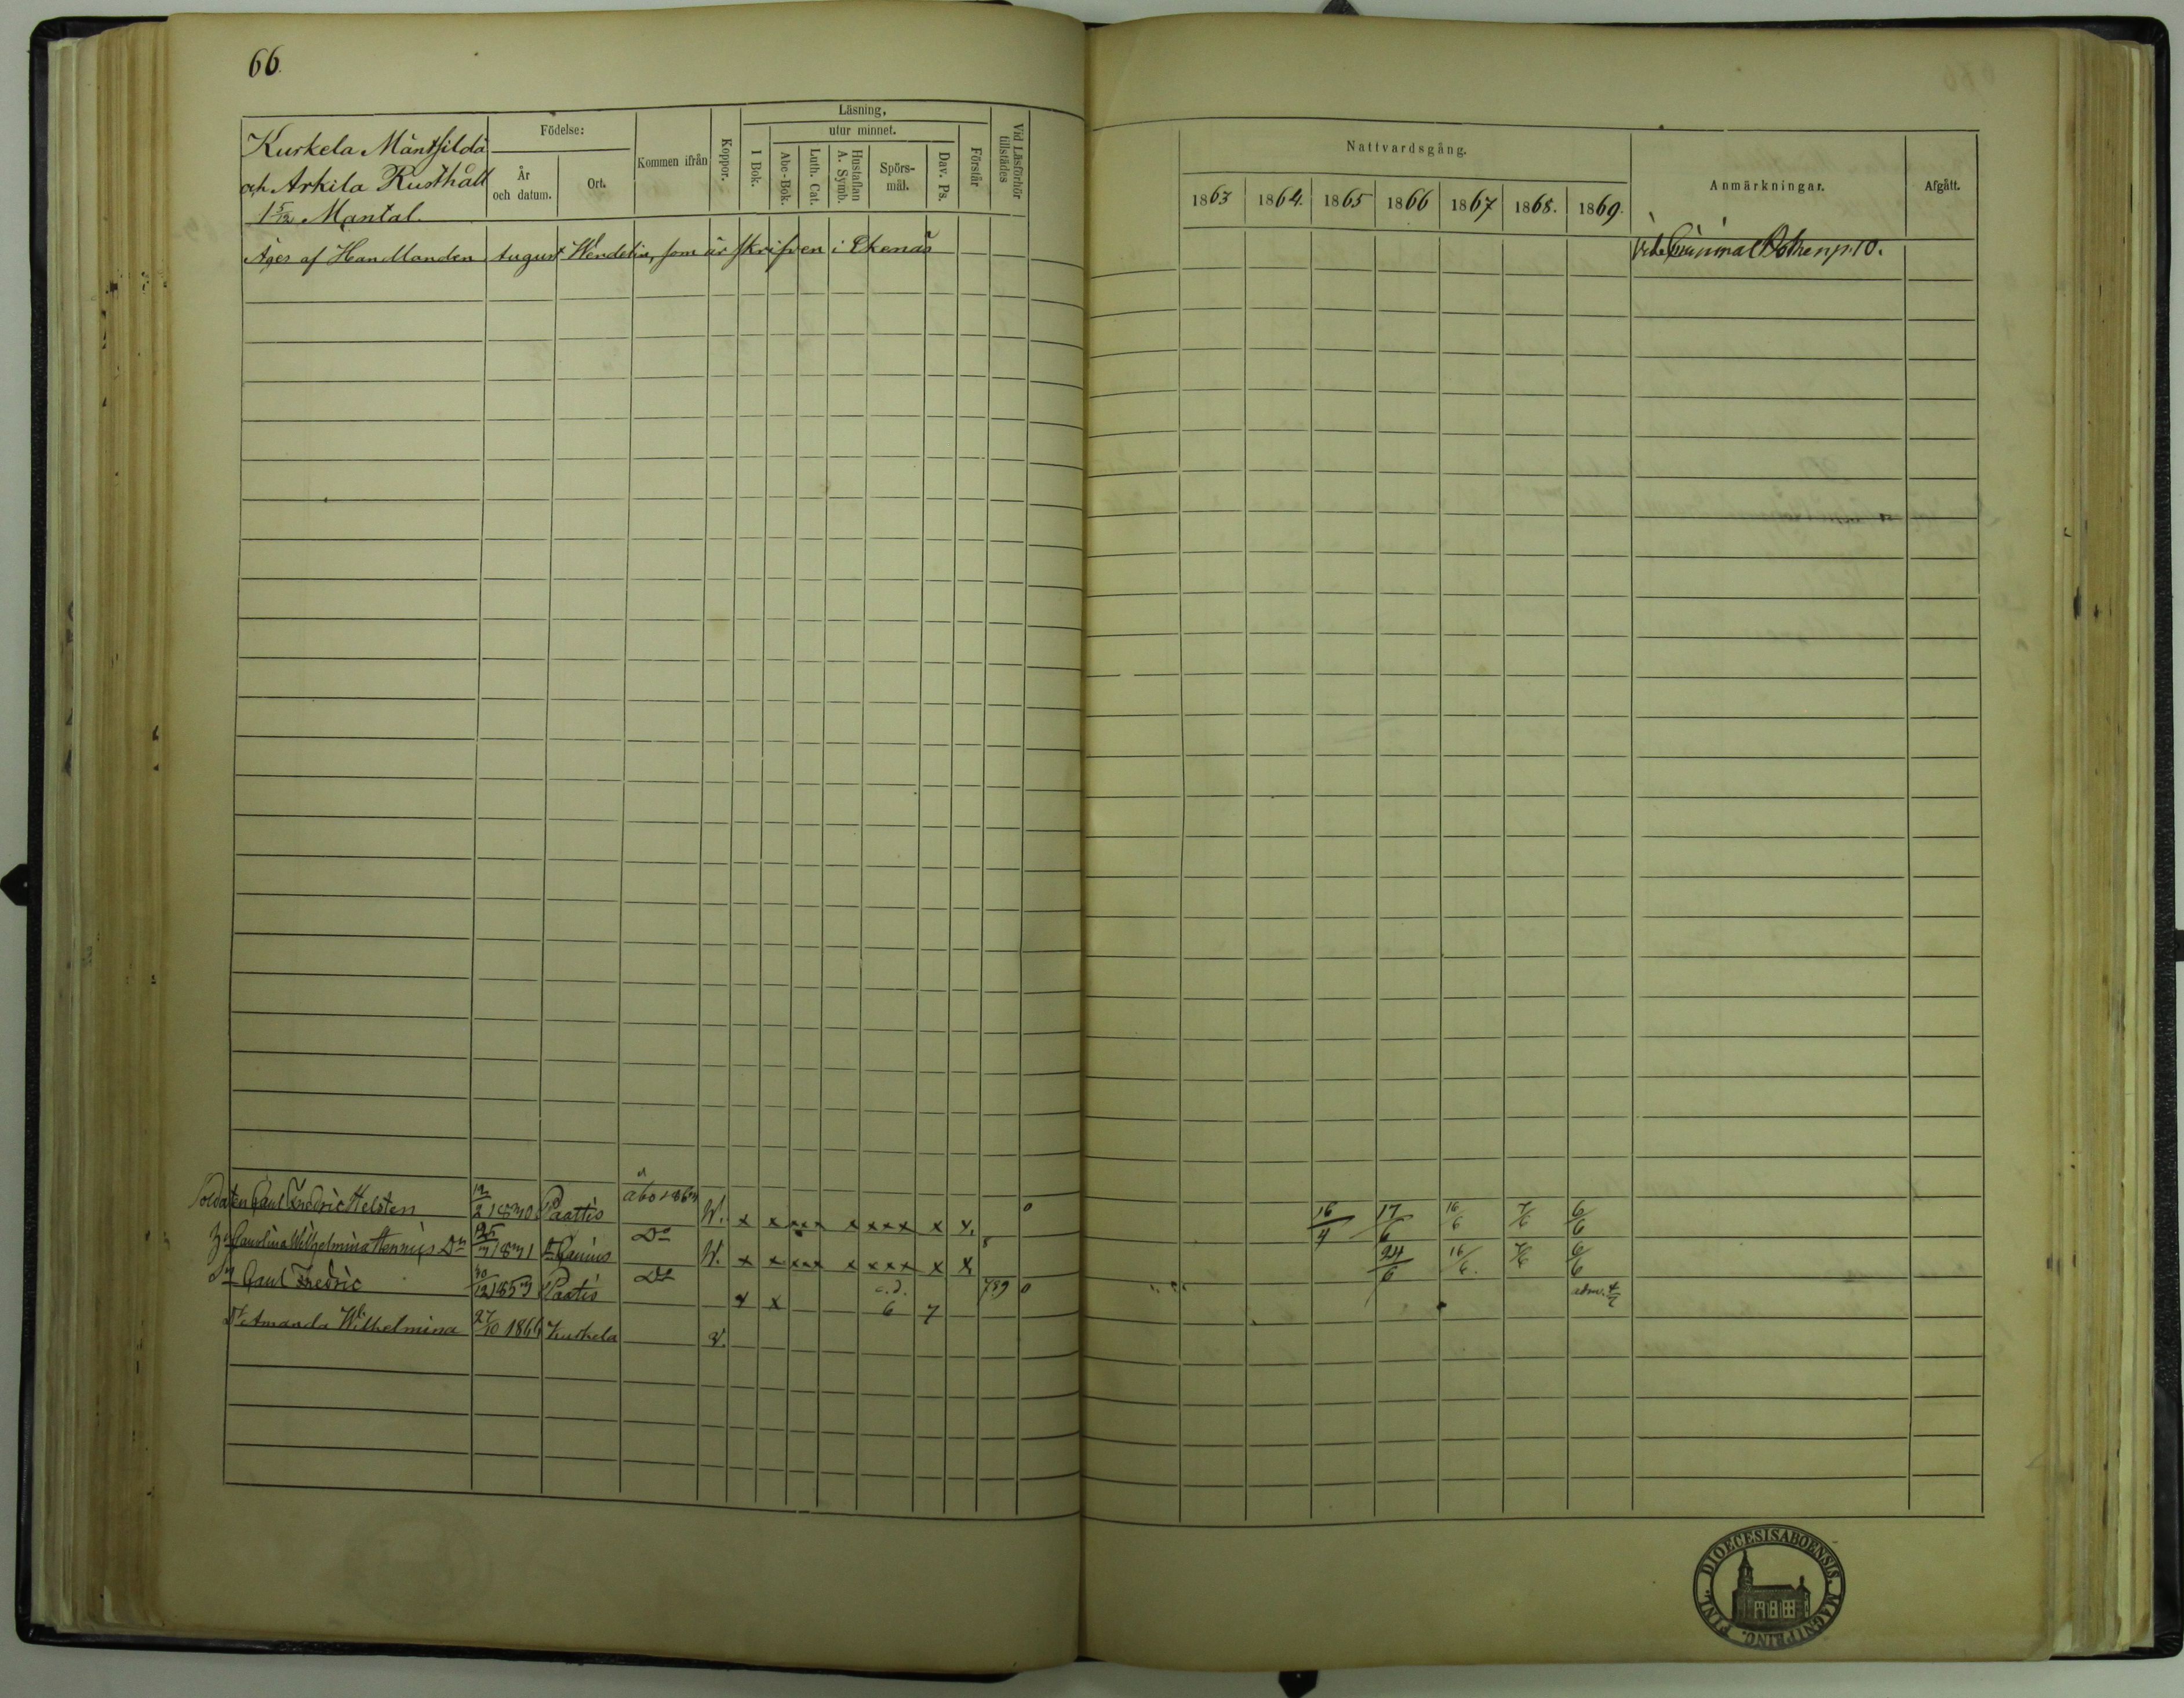 66.
Kurkela Mäntsilda
och Arkila Rusthåll
1 5/12 Mantal.
Födelse:
År och datum.
Ort.
Kommen ifrån
Koppor.
Läsning,
utur minnet.
I Bok.
Abc-Bok.
Luth. Cat.
Hustaflan A. Symb.
Spörs-mål.
Dav. Ps.
Förstår
Vid Läsförhör tillstädes
Nattvardsgång.
1863 1864. 1865 1866 1867 1868. 1869.
Anmärkningar.
Afgått.
Äges af Handlanden August Wendelin, som är skrifven i Ekenäs
Vide Criminal Boken p. 10.
Soldaten Paul Fredric Helsten 12/2 1830 Paattis Åbo W. x x xxx x xxx x x. 0 16/4 17/6 16/6 7/6 6/6
Carolina Wilhelmina 1831 Do W. x x xxx x xxx x x 24/6 16/6. 7/6 6/6
Sn Paul Fredric 30/12 1853 Paatis Do x x c.d. 6 7 789 0 adm. 4/7
Dr Amanda Wilhelmina 27/10 1866 Kurkela v.
FINL. DIOECESIS ABOENSIS. MAGNI PRINC.